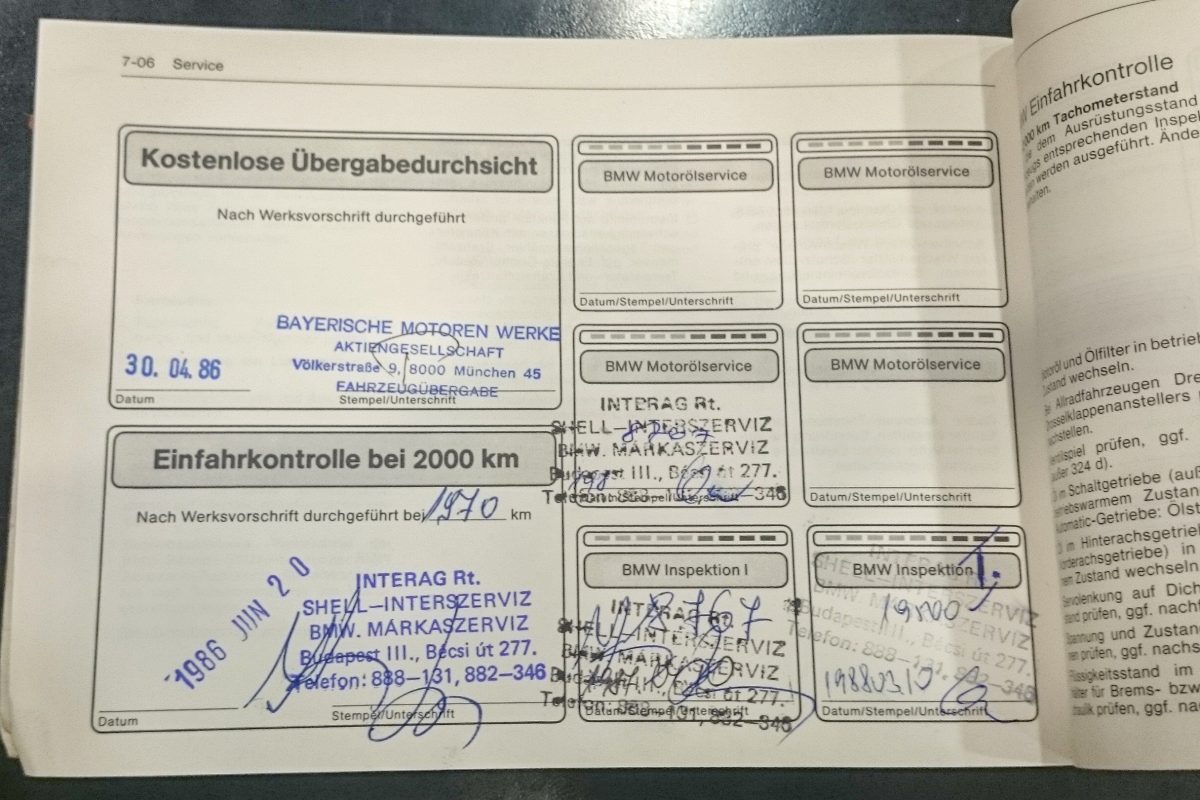 7-06 Service
Kostenlose Übergabedurchsicht
Nach Werksvorschrift durchgeführt
BAYERISCHE MOTOREN WERKE
AKTIENGESELLSCHAFT
Völkerstraße 9, 8000 München 45
FAHRZEUGÜBERGABE
30. 04. 86
Datum
Stempel/Unterschrift
Einfahrkontrolle bei 2000 km
Nach Werksvorschrift durchgeführt bei 1970 km
1986 JUN 20
INTERAG Rt.
SHELL–INTERSZERVIZ
BMW. MÁRKASZERVIZ
Budapest III., Bécsi út 277.
Telefon: 888–131, 882–346
Datum
Stempel/Unterschrift
BMW Motorölservice
Datum/Stempel/Unterschrift
BMW Motorölservice
Datum/Stempel/Unterschrift
BMW Motorölservice
INTERAG Rt.
SHELL–INTERSZERVIZ
BMW. MÁRKASZERVIZ
Budapest III., Bécsi út 277.
Telefon: 346
Datum/Stempel/Unterschrift
BMW Motorölservice
Datum/Stempel/Unterschrift
BMW Inspektion I
INTERAG Rt.
SHELL–INTERSZERVIZ
BMW. MÁRKASZERVIZ
út 277.
Telefon: 882–346
Datum/Stempel/Unterschrift
BMW Inspektion I.
INTERAG
SHELL–INTERSZERVIZ
Budapest III., Bécsi út 277.
Telefon: 888–131, 882–346
Datum/Stempel/Unterschrift
Einfahrkontrolle
km Tachometerstand
dem Ausrüstungsstand
entsprechenden Inspek
werden ausgeführt. Ände
und Ölfilter in betrie
Zustand wechseln.
Allradfahrzeugen Dre
prüfen, ggf.
außer 324 d).
im Schaltgetriebe (auß
Zustan
Automatic-Getriebe: Ölst
im Hinterachsgetrie
in
Zustand wechseln
auf Dich
prüfen, ggf. nach
und Zustan
prüfen, ggf. nachs
im
für Brems- bzw
prüfen, ggf. na